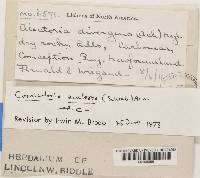 Lichens of North America
Alectoria divergens (Ach.) Nyl.
dry rocky hills, Carbonear,
Conception Bay, Newfoundland
Fernald & Wiegand
Cornicularia aculeata (Schreb.) Ach.
Revision by Irwin M. Brodo 1973
HERBARIUM OF
LINCOLN W. RIDDLE